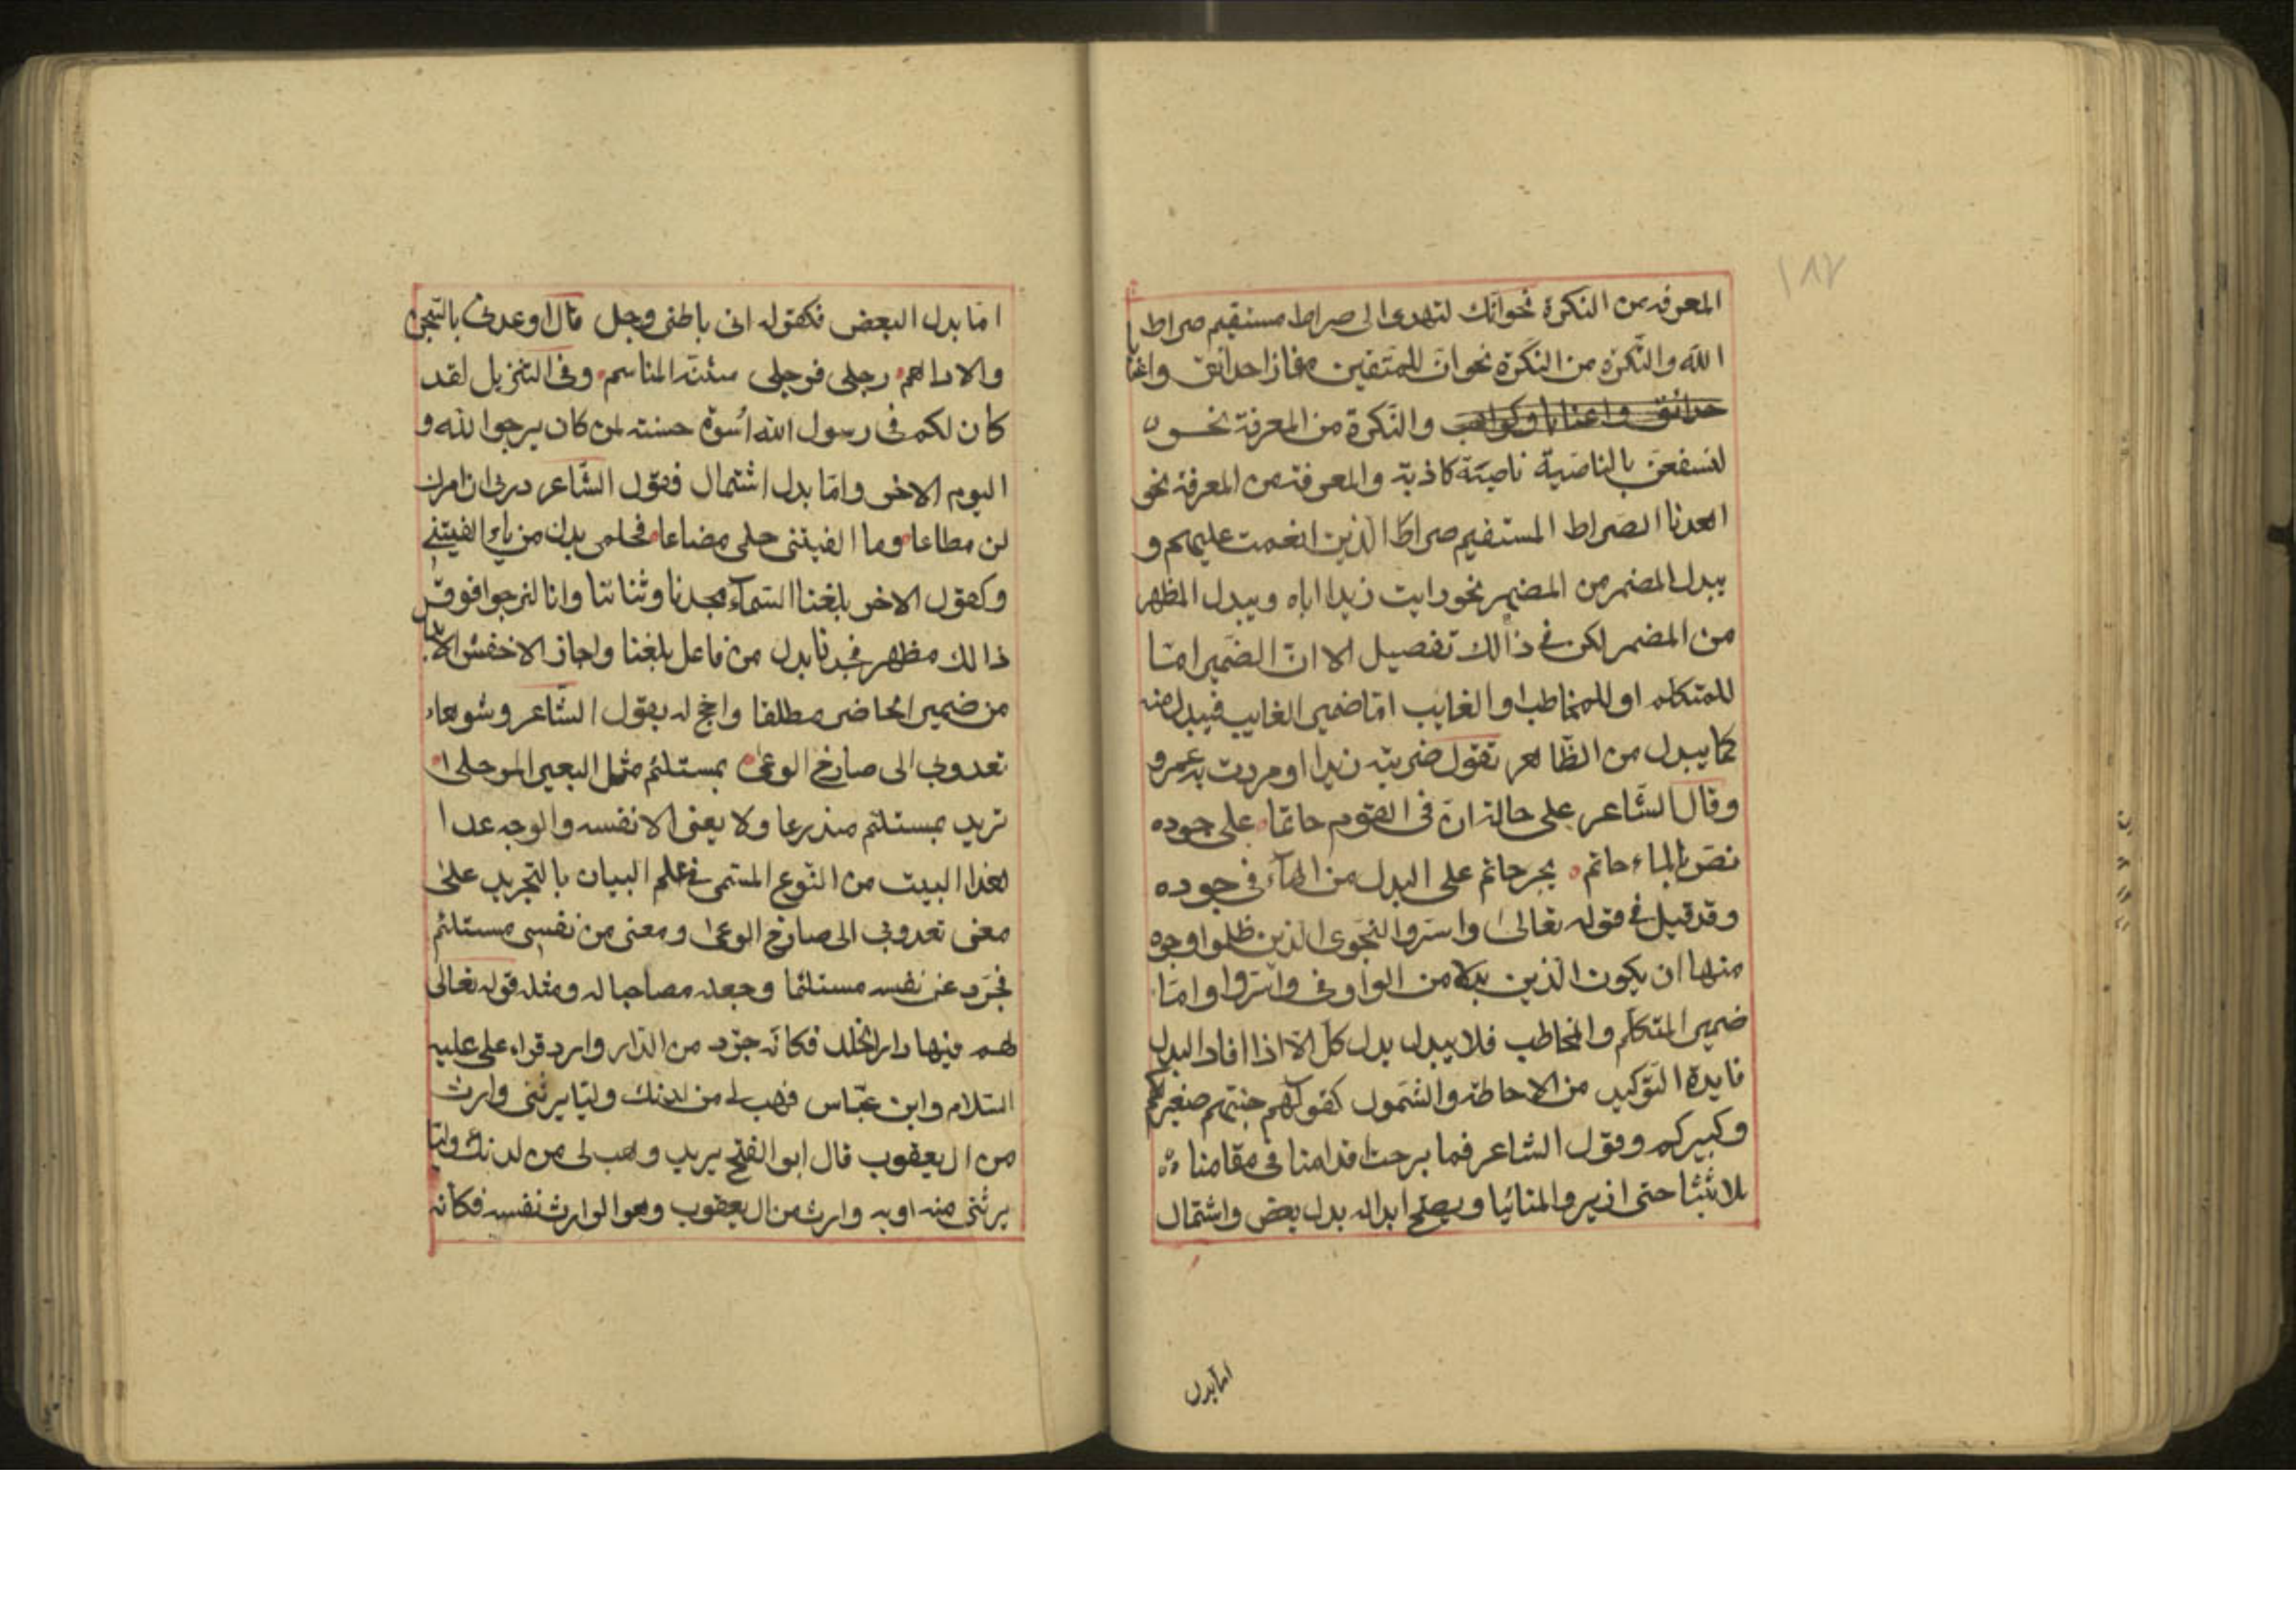 ١٨٢
المعرفه من النكرة نحو انك لتهدى الى صراط مستقيم صراط
الله والنكرة من النكرة نحو ان للمتقين مفازا حدائق واعنابا
حدائق واعنابا وكواعب والنكرة من المعرفة نحو
لنسفعن بالناصية ناصية كاذبة والمعرفة من المعرفة نحو
اهدنا الصراط المستقيم صراط الذين انعمت عليهم و
يبدل المضمر من المضمر نحو رايت زيدا اياه ويبدل المظهر
من المضمر لكن في ذالك تفصيل الا ان الضمير اما
للمتكلم او للمخاطب او الغايب اما ضمير الغايب فيبدل منه
كما يبدل من الظاهر تقول ضربته زيدا او مررت به عمرو
وقال الشاعر على حالة ان في القوم حاتما على جوده
بالماء حاتم يجر حاتم على البدل من الهاء في جوده
وقد قيل في قوله تعالى واسروا النجوى الذين ظلموا وجوه
منها ان يكون الذين بدلا من الواو في واسروا واما
ضمير المتكلم والمخاطب فلا يبدل بدل كل الا اذا افاد البدل
فايدة التوكيد من الاحاطة والشمول كقولهم جئتم صغيركم
وكبيركم وقول الشاعر فما برحت اقدامنا في مقامنا
ثلاثتنا حتى ازيروا المنائيا ويصح ابداله بدل بعض واشتمال
اما بدل
اما بدل البعض فكقوله اني باطني وجل قال اوعدني بالسجن
والاداهم رجلي فرجلي شثنة المناسم وفي التنزيل لقد
كان لكم في رسول الله اسوة حسنة لمن كان يرجوا الله و
اليوم الاخر واما بدل اشتمال فقول الشاعر ذريني ان امرك
لن مطاعا وما الفيتني حلمي مضاعا فحلمي بدل من ياء الفيتني
وكقول الاخر بلغنا السماء مجدنا وثنائنا وانا لنرجوا فوق
ذالك مظهر فمجدنا بدل من فاعل بلغنا واجاز الاخفش الابدال
من ضمير الحاضر مطلقا واحتج له بقول الشاعر وشوهاء
تعدوبي الى صارخ الوغى بمستلئم مثل البعير المرحل
تريد بمستلئم متدرعا ولا يعني الا نفسه والوجه عدا
هذا البيت من النوع المسمى في علم البيان بالتجريد على
معنى تعدوبي الى صارخ الوغى ومعني من نفسي مستلئم
فجرد عن نفسه مستلئما وجعله مصاحبا له ومثله قوله تعالى
لهم فيها دار الخلد فكانه جرد من الدار دار وقراء علي عليه
السلام وابن عباس فهب لي من لدنك وليا يرثني وارث
من ال يعقوب قال ابو الفتح يريد وهب لي من لدنك وليا
يرثني منه او به وارث من ال يعقوب وهو الوارث نفسه فكانه